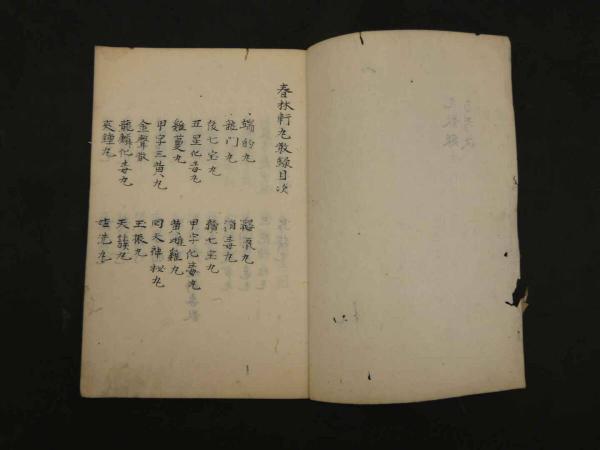 春林軒丸散錄目次
端的丸
龍門丸
後七宝丸
五星化毒丸
雞蔓丸
甲字三黄丸
金聲散
龍麟化毒丸
夾鐘丸
滾痰丸
消毒丸
續七宝丸
甲字化毒丸
黄雌雞丸
回天神秘丸
玉振丸
天鼓丸
姑洗丸